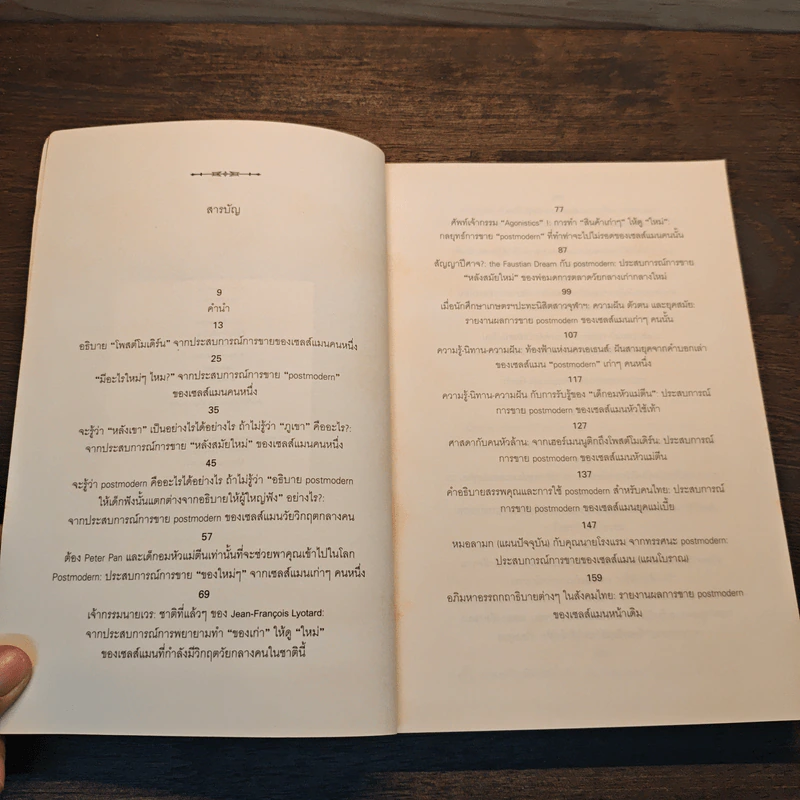 สารบัญ
9
คำนำ
13
อธิบาย “โพสต์โมเดิร์น” จากประสบการณ์การขายของเซลส์แมนคนหนึ่ง
25
“มีอะไรใหม่ๆ ไหม?” จากประสบการณ์การขาย “postmodern”
ของเซลส์แมนคนหนึ่ง
35
จะรู้ว่า “หลังเขา” เป็นอย่างไรได้อย่างไร ถ้าไม่รู้ว่า “ภูเขา” คืออะไร?:
จากประสบการณ์การขาย “หลังสมัยใหม่” ของเซลส์แมนคนหนึ่ง
45
จะรู้ว่า postmodern คืออะไรได้อย่างไร ถ้าไม่รู้ว่า “อธิบาย postmodern
ให้เด็กฟังนั้นแตกต่างจากอธิบายให้ผู้ใหญ่ฟัง” อย่างไร?:
จากประสบการณ์การขาย postmodern ของเซลส์แมนวัยวิกฤตกลางคน
57
ต้อง Peter Pan และเด็กอมหัวแม่ตีนเท่านั้นที่จะช่วยพาคุณเข้าไปในโลก
Postmodern: ประสบการณ์การขาย “ของใหม่ๆ” จากเซลส์แมนเก่าๆ คนหนึ่ง
69
เจ้ากรรมนายเวร: ชาติที่แล้วๆ ของ Jean-François Lyotard:
จากประสบการณ์การพยายามทำ “ของเก่า” ให้ดู “ใหม่”
ของเซลส์แมนที่กำลังมีวิกฤตวัยกลางคนในชาตินี้
77
ศัพท์เจ้ากรรม “Agonistics” !: การทำ “สินค้าเก่าๆ” ให้ดู “ใหม่”
กลยุทธ์การขาย “postmodern” ที่ทำท่าจะไปไม่รอดของเซลส์แมนคนนั้น
87
สัญญาปีศาจ?: the Faustian Dream กับ postmodern: ประสบการณ์การขาย
“หลังสมัยใหม่” ของพ่อมดการตลาดวัยกลางเก่ากลางใหม่
99
เมื่อนักศึกษาเกษตรฯปะทะนิสิตสาวจุฬาฯ: ความฝัน ตัวตน และยุคสมัย:
รายงานผลการขาย postmodern ของเซลส์แมนเก่าๆ คนนั้น
107
ความรู้-นิทาน-ความฝัน: ท้องฟ้าแห่งนครเอเธนส์: ฝันสามยุคจากคำบอกเล่า
ของเซลส์แมน “postmodern” เก่าๆ คนหนึ่ง
117
ความรู้-นิทาน-ความฝัน กับการรับรู้ของ “เด็กอมหัวแม่ตีน”: ประสบการณ์
การขาย postmodern ของเซลส์แมนหัวใช้เท้า
127
ศาสดากับคนหัวล้าน: จากเฮอร์เมนนูติกถึงโพสต์โมเดิร์น: ประสบการณ์
การขาย postmodern ของเซลส์แมนหัวแม่ตีน
137
คำอธิบายสรรพคุณและการใช้ postmodern สำหรับคนไทย: ประสบการณ์
การขาย postmodern ของเซลส์แมนยุคแม่เบี้ย
147
หมอลามก (แผนปัจจุบัน) กับคุณนายโรงแรม จากทรรศนะ postmodern:
ประสบการณ์การขายของเซลส์แมน (แผนโบราณ)
159
อภิมหาอรรถกถาธิบายต่างๆ ในสังคมไทย: รายงานผลการขาย postmodern
ของเซลส์แมนหน้าเดิม